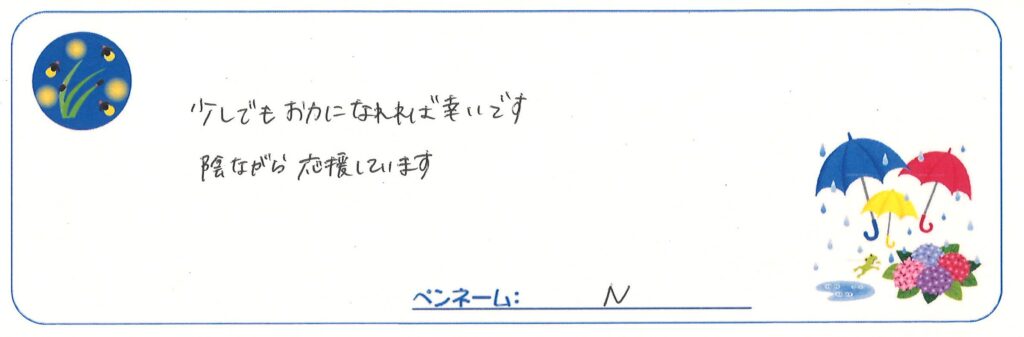 少しでもお力になれれば幸いです
陰ながら応援しています
ペンネーム: N